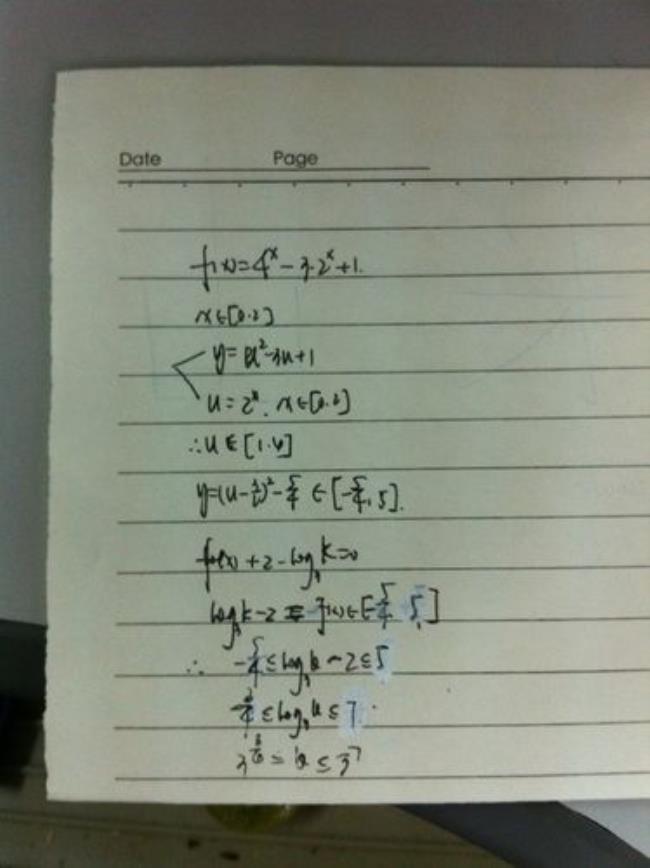 Date Page
f(x)=4^x-3·2^x+1.
x∈[0.2]
y=u²-3u+1
u=2^x. x∈[0.2]
∴u∈[1.4]
y=(u-3/2)²-5/4∈[-5/4,5].
f(x)+2-log₃k=0
log₃k-2=f(x)∈[-5/4,5]
∴ -5/4≤log₃k-2≤5
3/4≤log₃k≤7.
≤k≤3^7